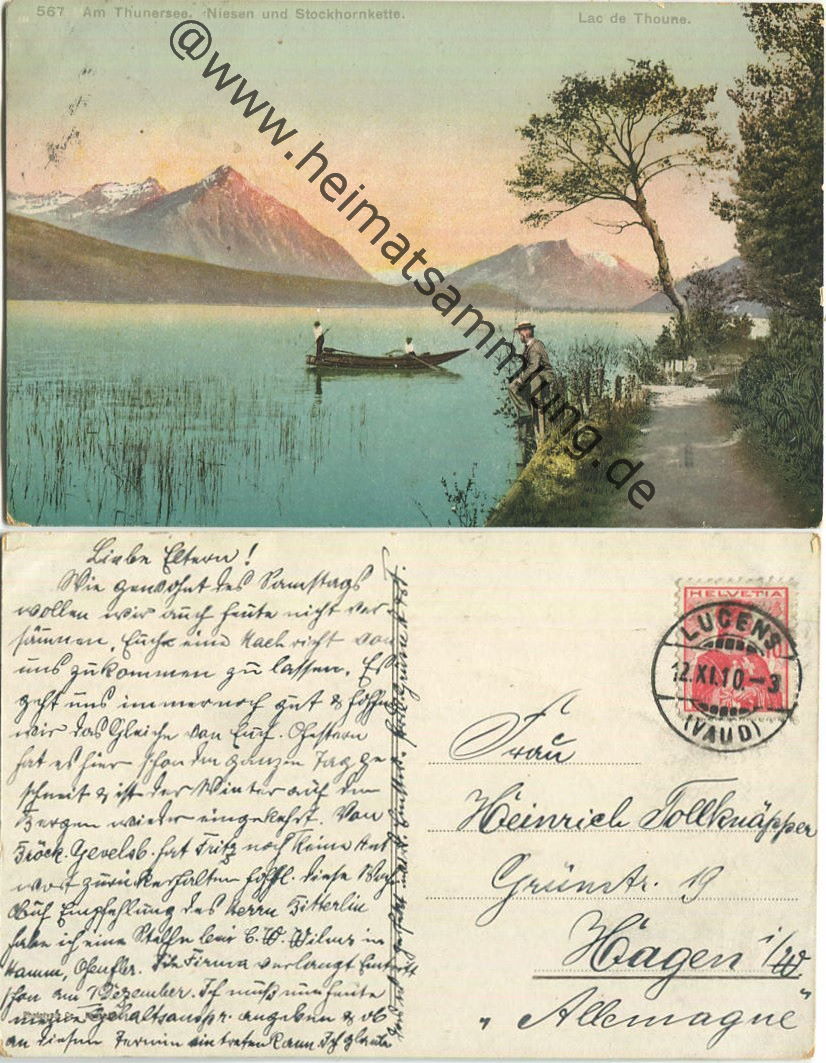 567 Am Thunersee. Niesen und Stockhornkette.
Lac de Thoune.
@www.heimatsammlung.de
Liebe Eltern!
Wie gewohnt des Samstags
wollen wir auch heute nicht ver-
säumen, Euch eine Nachricht von
uns zukommen zu lassen. Es
geht uns immer noch gut & hoffen
wir das Gleiche von Euch.
hat es hier schon den ganzen Tag ge
schneit & ist der Winter auf den
Bergen wieder eingekehrt. Von
Gevelsb. hat Fritz noch keine Ant
wort zurückerhalten hoffl. diese
Auf Empfehlung des Herrn Bitterlin
habe ich eine Stelle bei in
Hamm, Die Firma verlangt Eintritt
schon am 1 Dezember. Ich muß nun heute
meine Gehaltsanspr. angeben & ob
an diesem Termin eintreten kann. Ich glaube
HELVETIA
LUCENS
12.XI.10-3
(VAUD)
Frau
Heinrich Tollknäpper
Grünstr. 19
Hagen i/W
"Allemagne"